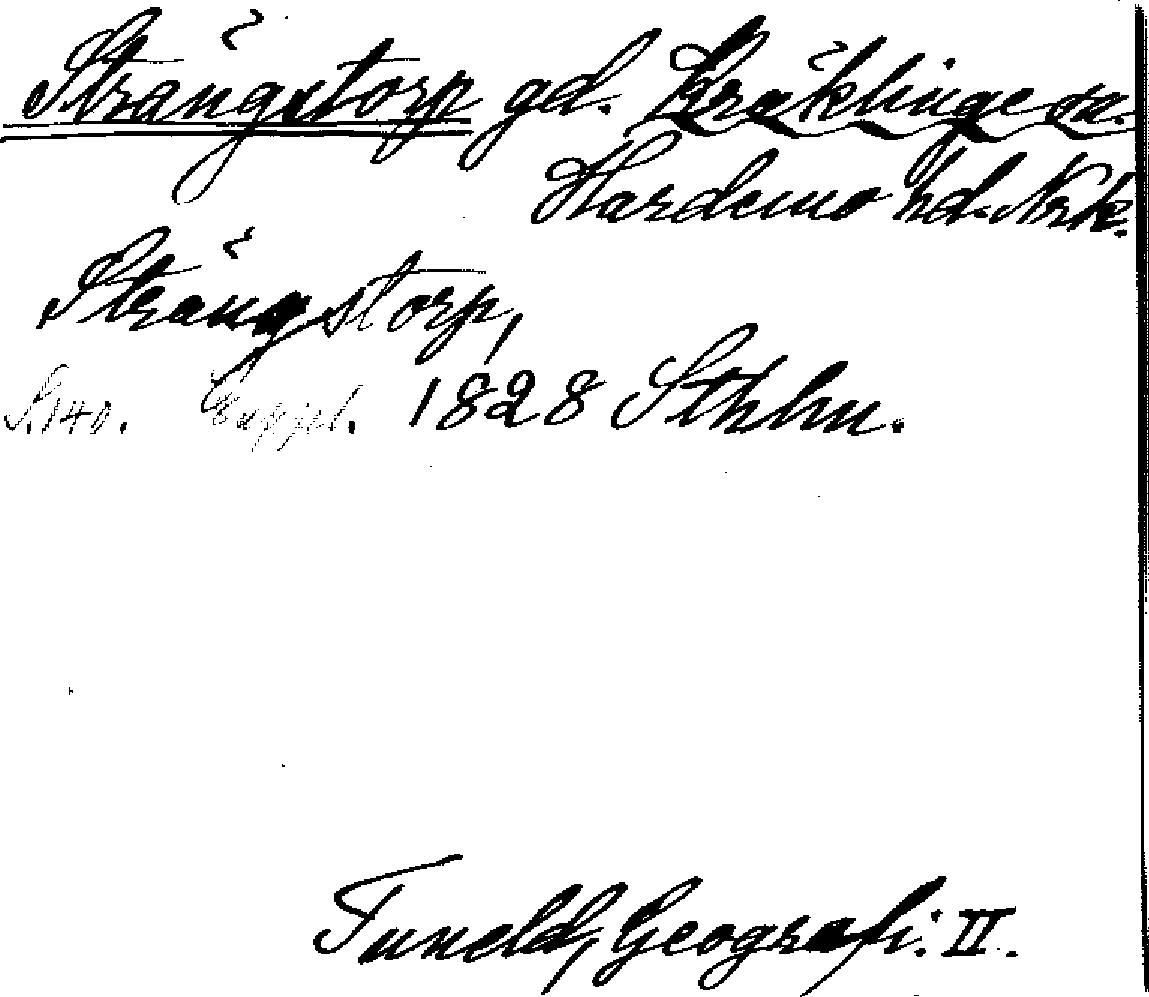 Strängstorp gd. Kräklinge sn.
Hardemo hd. Nrk.
Strängstorp,
S. 140. Uppl. 1828 Sthlm.
Tuneld, Geografi. II.